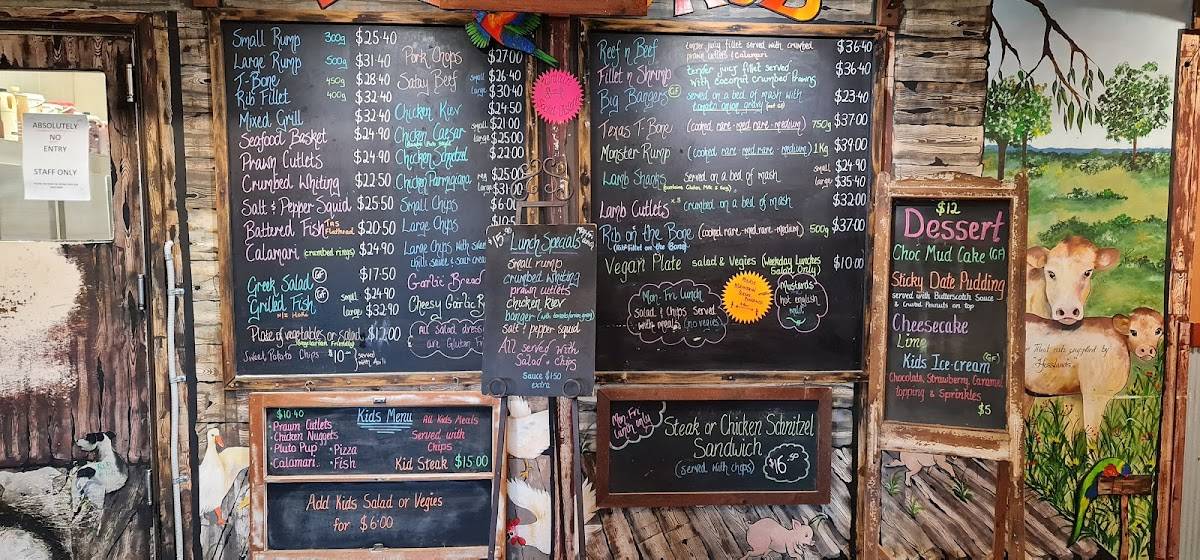 ABSOLUTELY
NO
ENTRY
STAFF ONLY
Small Rump 300g $25·40
Large Rump 500g $31·40
T-Bone 450g $28·40
Rib Fillet 400g $32·40
Mixed Grill $32·40
Seafood Basket $24·90
Prawn Cutlets $24·90
Crumbed Whiting $22·50
Salt & Pepper Squid $25·50
Battered Fish Flathead $20·50
Calamari (crumbed rings) $24·90
Greek Salad GF $17·50
Grilled Fish GF small $24·90
large $32·90
Plate of vegetables or salad $12·00
Vegetarian Friendly
Sweet Potato Chips $10 (served with Aoli)
Pork Chops $27·00
Satay Beef small $26·40
large $30·40
Chicken Kiev $24·50
Chicken Caesar small $21·00
large $25·00
Chicken Schnitzel $22·00
Chicken Parmigiana reg $25·00
large $31·00
Small Chips $6·00
Large Chips $10·5
Large Chips with
Garlic Bread
Cheesy Garlic
All Salad
are Gluten
$15·90
Lunch Specials
Small rump
crumbed whiting
prawn cutlets
chicken kiev
banger (with tomato/onion gravy)
salt & pepper squid
All served with
Salad & chips
Sauce $1·50
extra
Reef n Beef tender juicy fillet served with crumbed $36·40
prawn cutlets & calamari
Fillet n Shrimp tender juicy fillet served $36·40
with coconut crumbed Prawns
Big Bangers GF served on a bed of mash with $23·40
tomato onion gravy
Texas T-Bone (cooked rare-med rare-medium) 750g $37·00
Monster Rump (cooked rare-med rare-medium) 1Kg $39·00
Lamb Shanks served on a bed of mash small $24·90
large $35·40
Lamb Cutlets x3 crumbed on a bed of mash $32·00
Rib on the Bone (cooked rare-med rare-medium) 500g $37·00
(Rib Fillet on the Bone)
Vegan Plate salad & Vegies (Weekday Lunches Salad Only) $10·00
Mon-Fri Lunch
Salad & Chips Served
with meals (no vegies)
Mustards
hot english
mild
$10·40
Prawn Cutlets
Chicken Nuggets
·Pluto Pup ·Pizza
·Calamari ·Fish
Kids Menu
All Kids Meals
Served with
Chips
Kid Steak $15·00
Add Kids Salad or Vegies
for $6·00
Mon-Fri
Lunch only
Steak or Chicken Schnitzel
Sandwich
(served with chips)
$16·50
$12
Dessert
Choc Mud Cake (GF)
Sticky Date Pudding
served with Butterscotch Sauce
& Crushed Peanuts on top
Cheesecake
Lime
Kids Ice-cream GF
Chocolate, Strawberry, Caramel
topping & Sprinkles
$5
supplied by